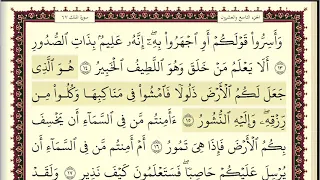 الجزء التاسع والعشرون سورة الملك ٦٧
وَأَسِرُّوا۟ قَوْلَكُمْ أَوِ ٱجْهَرُوا۟ بِهِۦٓ ۖ إِنَّهُۥ عَلِيمٌۢ بِذَاتِ ٱلصُّدُورِ
١٣ أَلَا يَعْلَمُ مَنْ خَلَقَ وَهُوَ ٱللَّطِيفُ ٱلْخَبِيرُ ١٤ هُوَ ٱلَّذِى
جَعَلَ لَكُمُ ٱلْأَرْضَ ذَلُولًا فَٱمْشُوا۟ فِى مَنَاكِبِهَا وَكُلُوا۟ مِن
رِّزْقِهِۦ ۖ وَإِلَيْهِ ٱلنُّشُورُ ١٥ ءَأَمِنتُم مَّن فِى ٱلسَّمَآءِ أَن يَخْسِفَ
بِكُمُ ٱلْأَرْضَ فَإِذَا هِىَ تَمُورُ ١٦ أَمْ أَمِنتُم مَّن فِى ٱلسَّمَآءِ أَن
يُرْسِلَ عَلَيْكُمْ حَاصِبًا ۖ فَسَتَعْلَمُونَ كَيْفَ نَذِيرِ ١٧ وَلَقَدْ